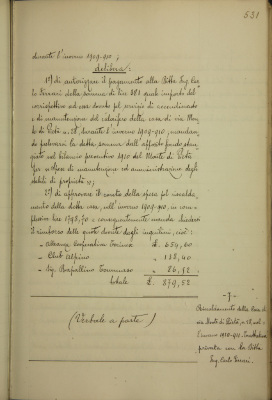 531
durante l'inverno 1909-910;
delibera:
1°) di autorizzare il pagamento alla Ditta Ing. Car
lo Ferrari della somma di lire 281 quale importo del
corrispettivo ad essa dovuto pel servizio di riscaldamento
e di manutenzione del calorifero della casa di via Mon
te di Pietà n. 28, durante l'inverno 1909-910, mandan
do prelevarsi la detta somma dall'apposito fondo stan
ziato nel bilancio preventivo 1910 del Monte di Pietà
per spese di manutenzione ed amministrazione degli
stabili di proprietà;
2°) di approvare il conto della spesa pel riscalda
mento della detta casa, nell'inverno 1909-910, in com
plessive lire 1798,70 e conseguentemente manda chiedersi
il rimborso delle quote dovute dagli inquilini, cioè:
- Alleanza Cooperativa Torinese £. 654,60
- Club Alpino " 138,40
- Sig. Bonfallino Tommaso " 86,52
Totale £. 879,52
(Verbale a parte)
-7-
Riscaldamento della Casa di
via Monte di Pietà, n. 28, nel
l'inverno 1910-911. Contratto
privato con la Ditta
Ing. Carlo Ferrari.